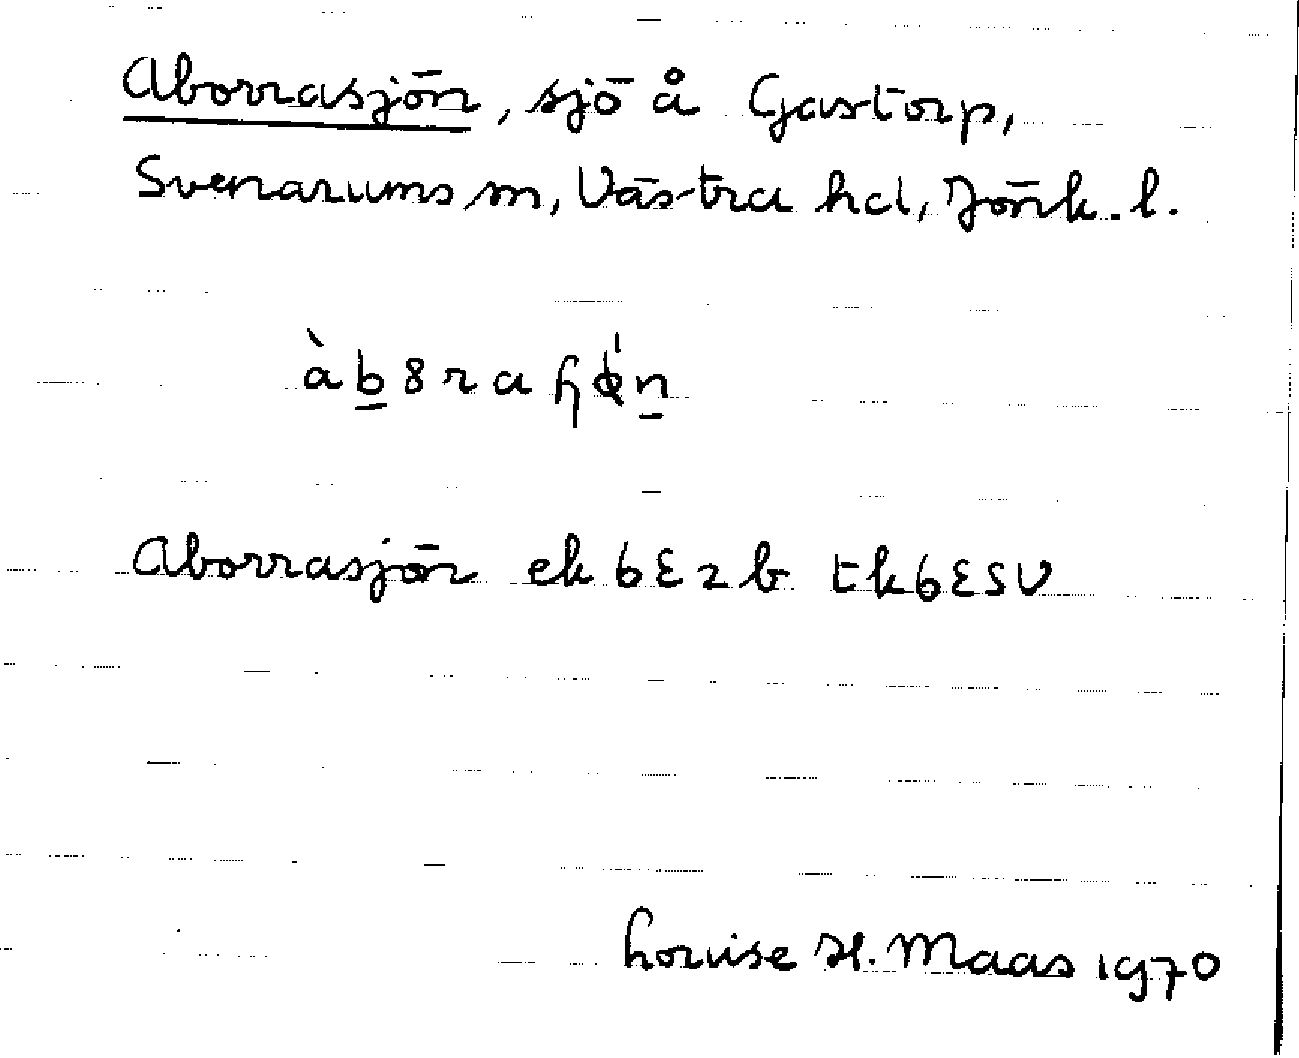 Aborrasjön, sjö å Gastorp,
Svenarums sn, Västra hd, Jönk. l.
Aborrasjön ek 6E2b tk6E5V
Louise H. Maas 1970